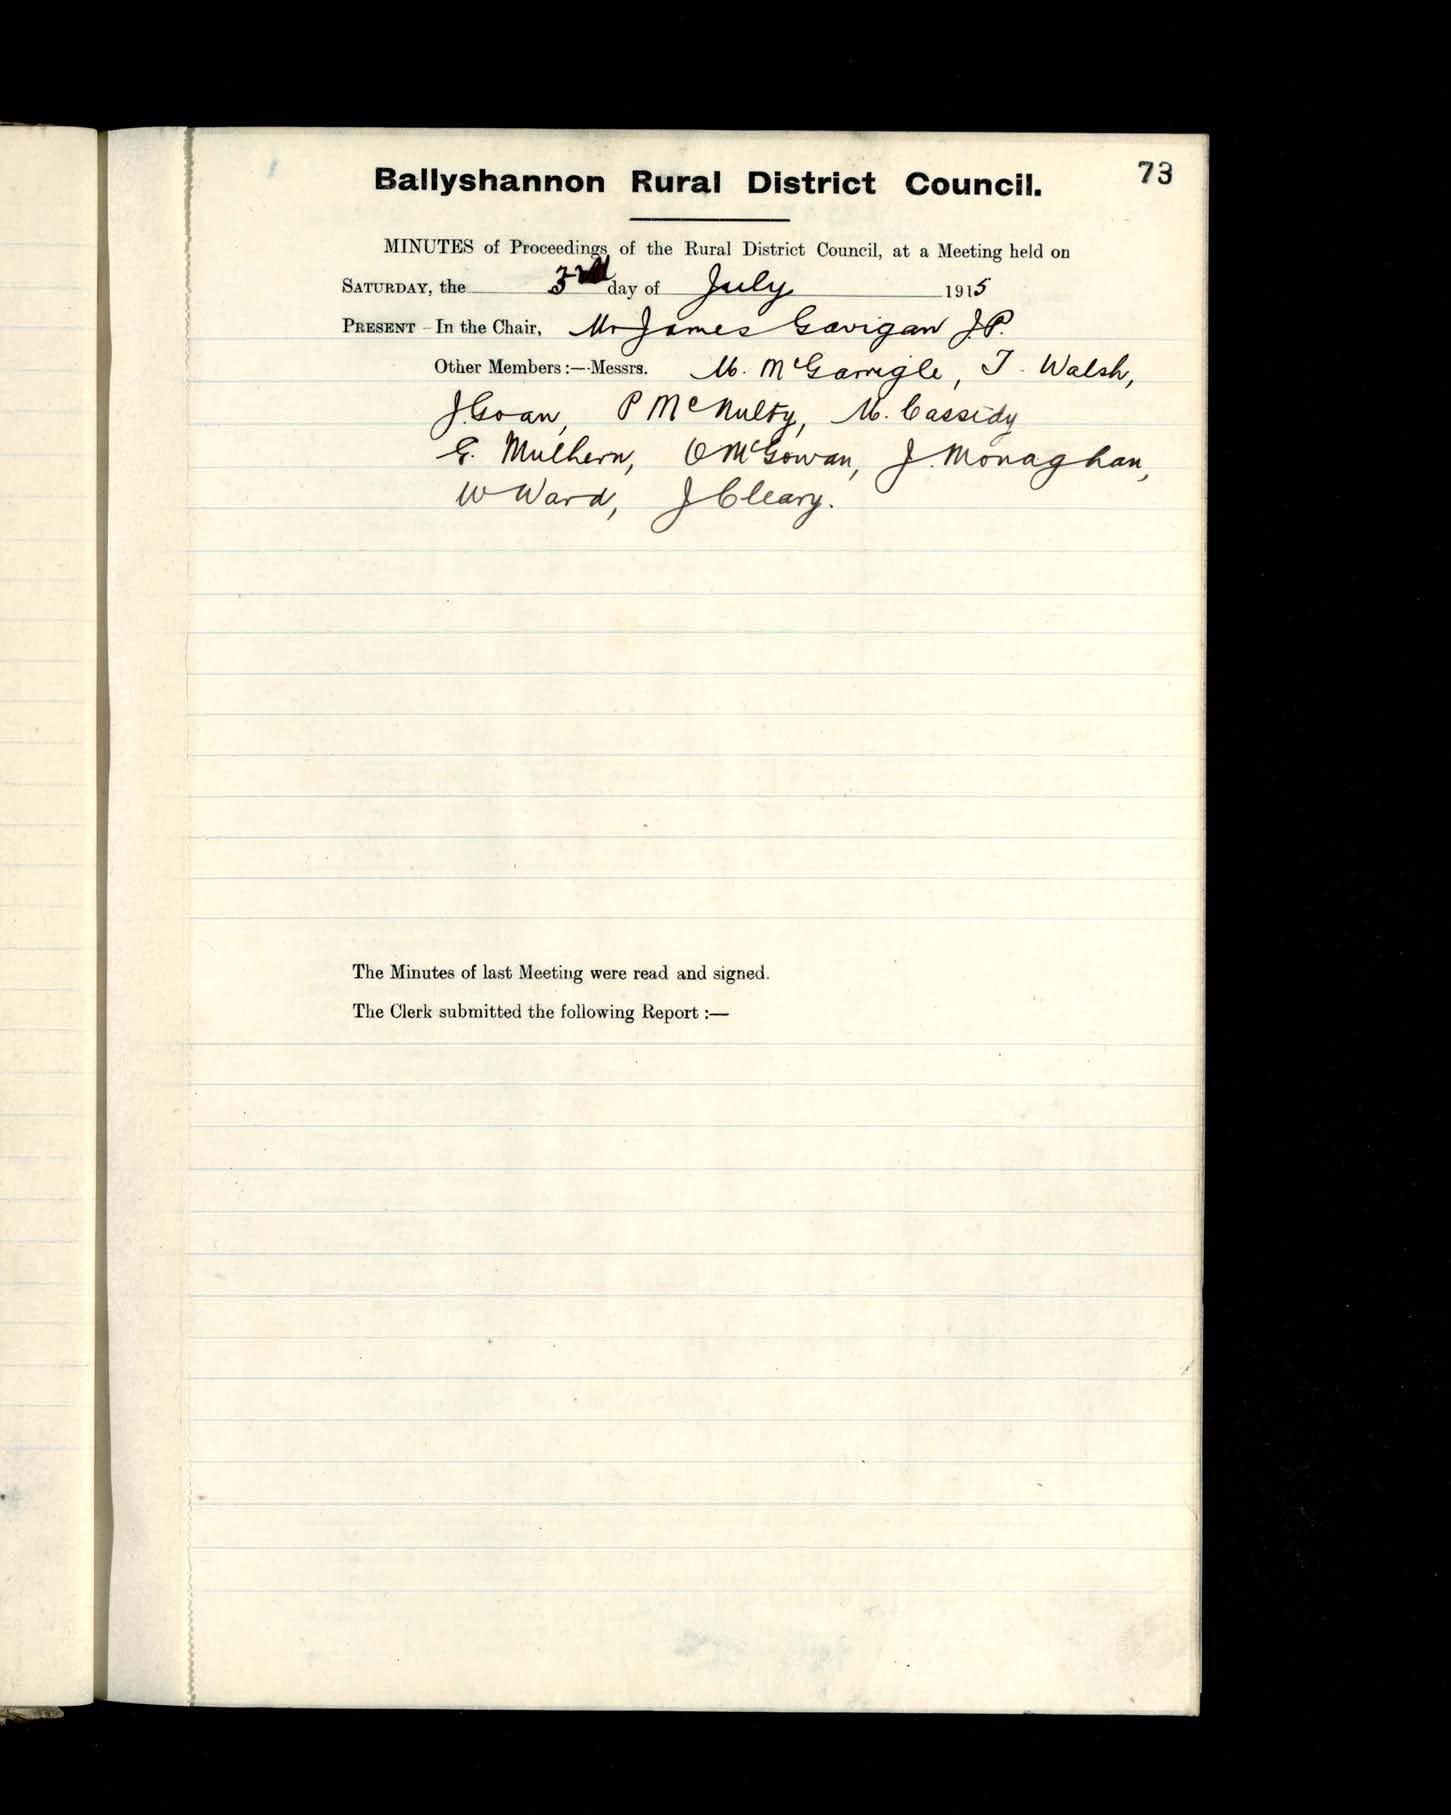 73
Ballyshannon Rural District Council.
MINUTES of Proceedings of the Rural District Council, at a Meeting held on
SATURDAY, the 3rd day of July 1915
PRESENT – In the Chair, Mr James Gavigan J.P.
Other Members :—Messrs. M. McGarrigle, T. Walsh,
J. Goan, P McNulty, M. Cassidy
E. Mulhern, O McGowan, J. Monaghan,
W Ward, J Cleary.
The Minutes of last Meeting were read and signed.
The Clerk submitted the following Report :—